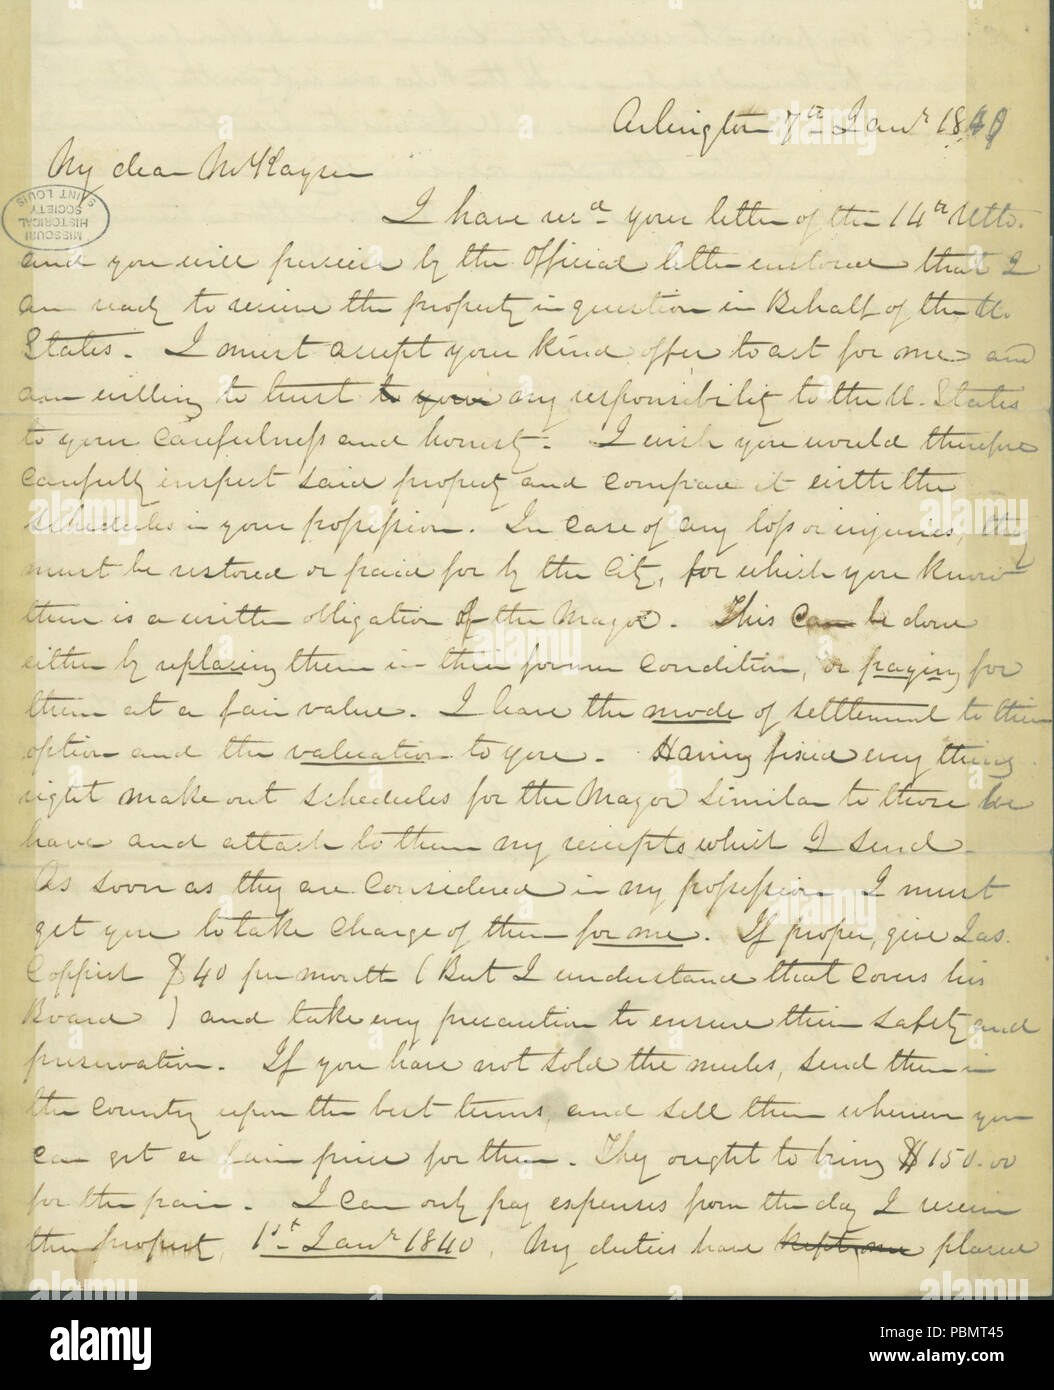 Arlington 7th Janr 1840
My dear Mr Kayser
MISSOURI
HISTORICAL
SOCIETY
SAINT LOUIS
I have recd your letter of the 14th Ulto.
and you will perceive by the Official letter enclosed that I
am ready to receive the property in question in Behalf of the U.
States. I must accept your kind offer to act for me and
am willing to trust to your my responsibility to the U. States
to your carefulness and honesty. I wish you would therefore
carefully inspect said property and compare it with the
schedules in your possession. In case of any loss or injuries, they
must be restored or paid for by the City, for which you know
there is a written obligation of the Mayor. This can be done
either by replacing them in their former condition, or paying for
them at a fair value. I leave the mode of settlement to their
option and the valuation to you. Having fixed every thing
right make out schedules for the Mayor similar to those we
have and attach to them my receipts which I send.
As soon as they are considered in my possession I must
get you to take charge of them for me. If proper, give Jas.
$40 per month (But I understand that covers his
Board) and take every precaution to ensure their safety and
preservation. If you have not sold the mules, send them in
the country upon the best terms, and sell them whenever you
can get a fair price for them. They ought to bring $150.00
for the pair. I can only pay expenses from the day I receive
the property, 1st Janr 1840. My duties have kept me placed
alamy
Image ID: PBMT45
www.alamy.com